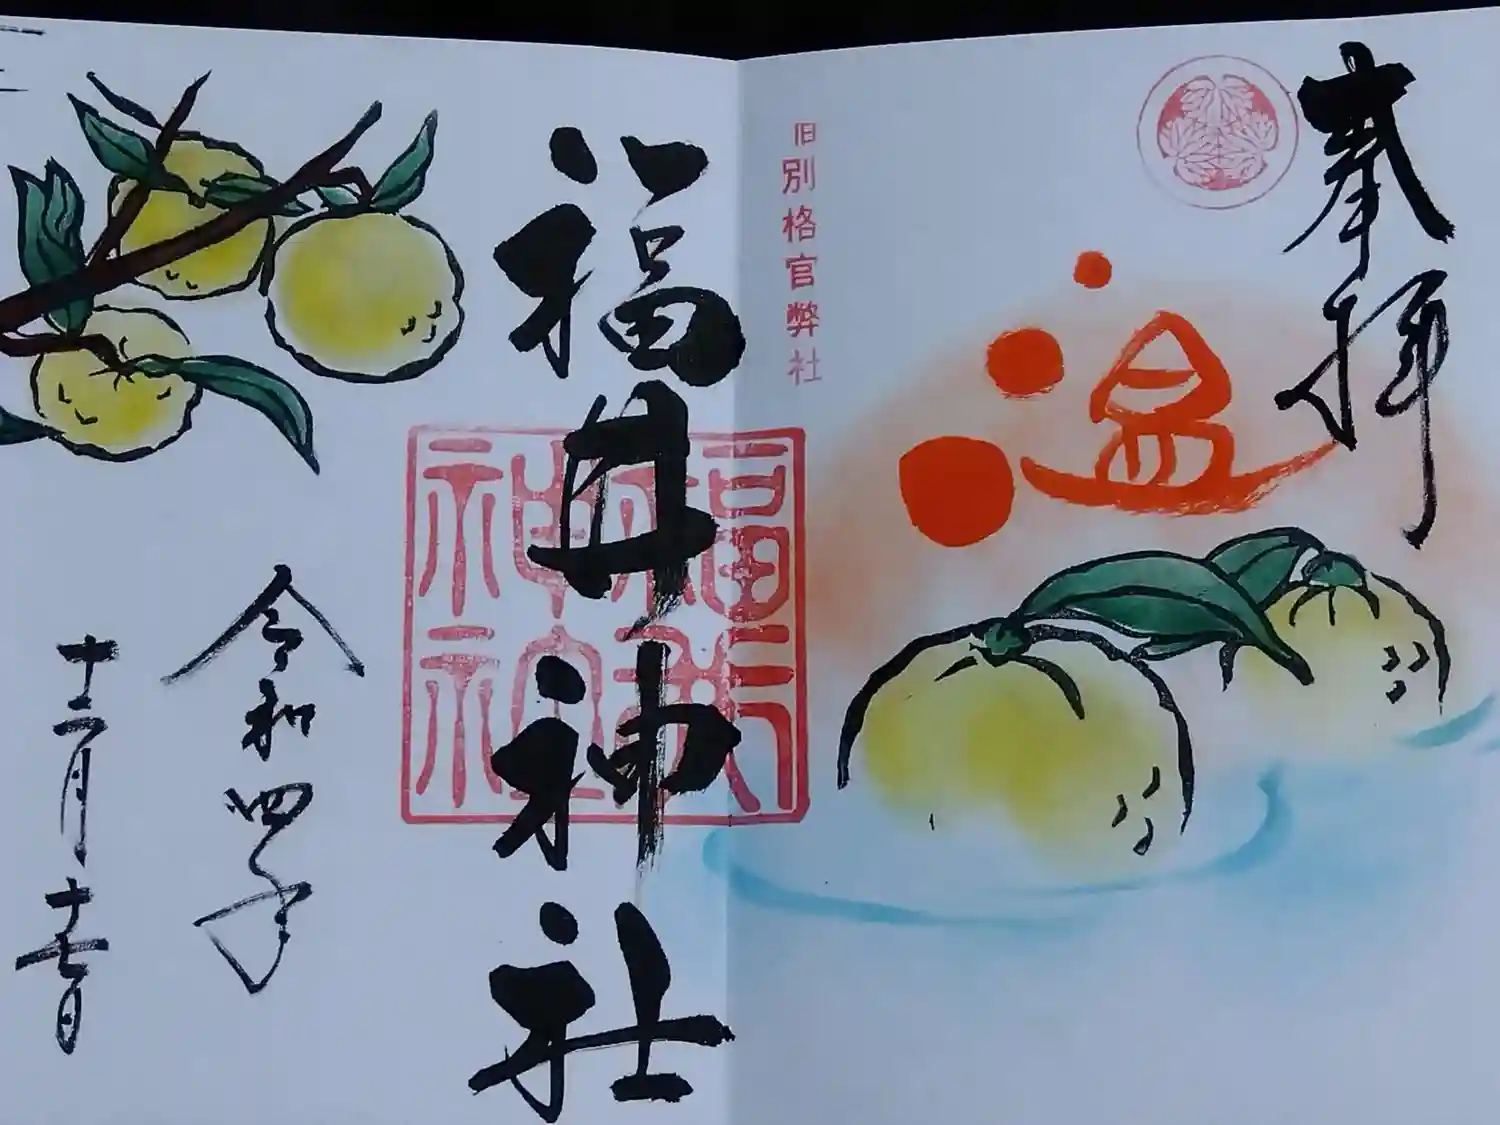 奉拝
温
旧別格官幣社
福井神社
福井神社
令和四年
十二月十七日